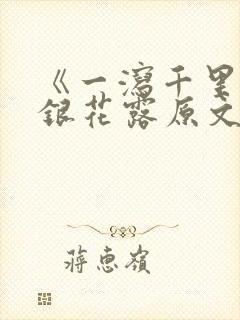 《一瀉千里
銀花露原文
蔣惠嶺